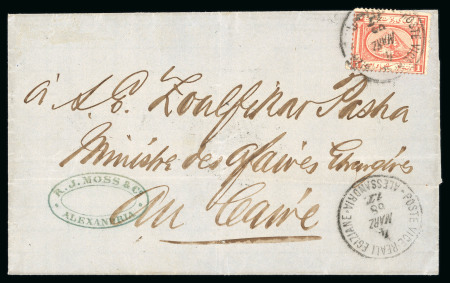 à S. E. Zoulfikar Pasha
Ministre des affaires Etrangères
Au Caire
R. J. MOSS & Co
ALEXANDRIA
POSTE VICE REALI EGIZIANE
ALESSANDRIA
MARZ
68